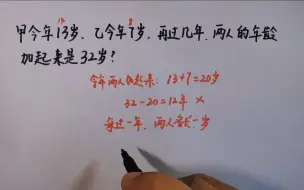 甲今年13岁、乙今年7岁、再过几年、两人的年龄
加起来是32岁?
今年两人加起来:13+7=20岁
32-20=12年 ×
每过一年、两人各长一岁